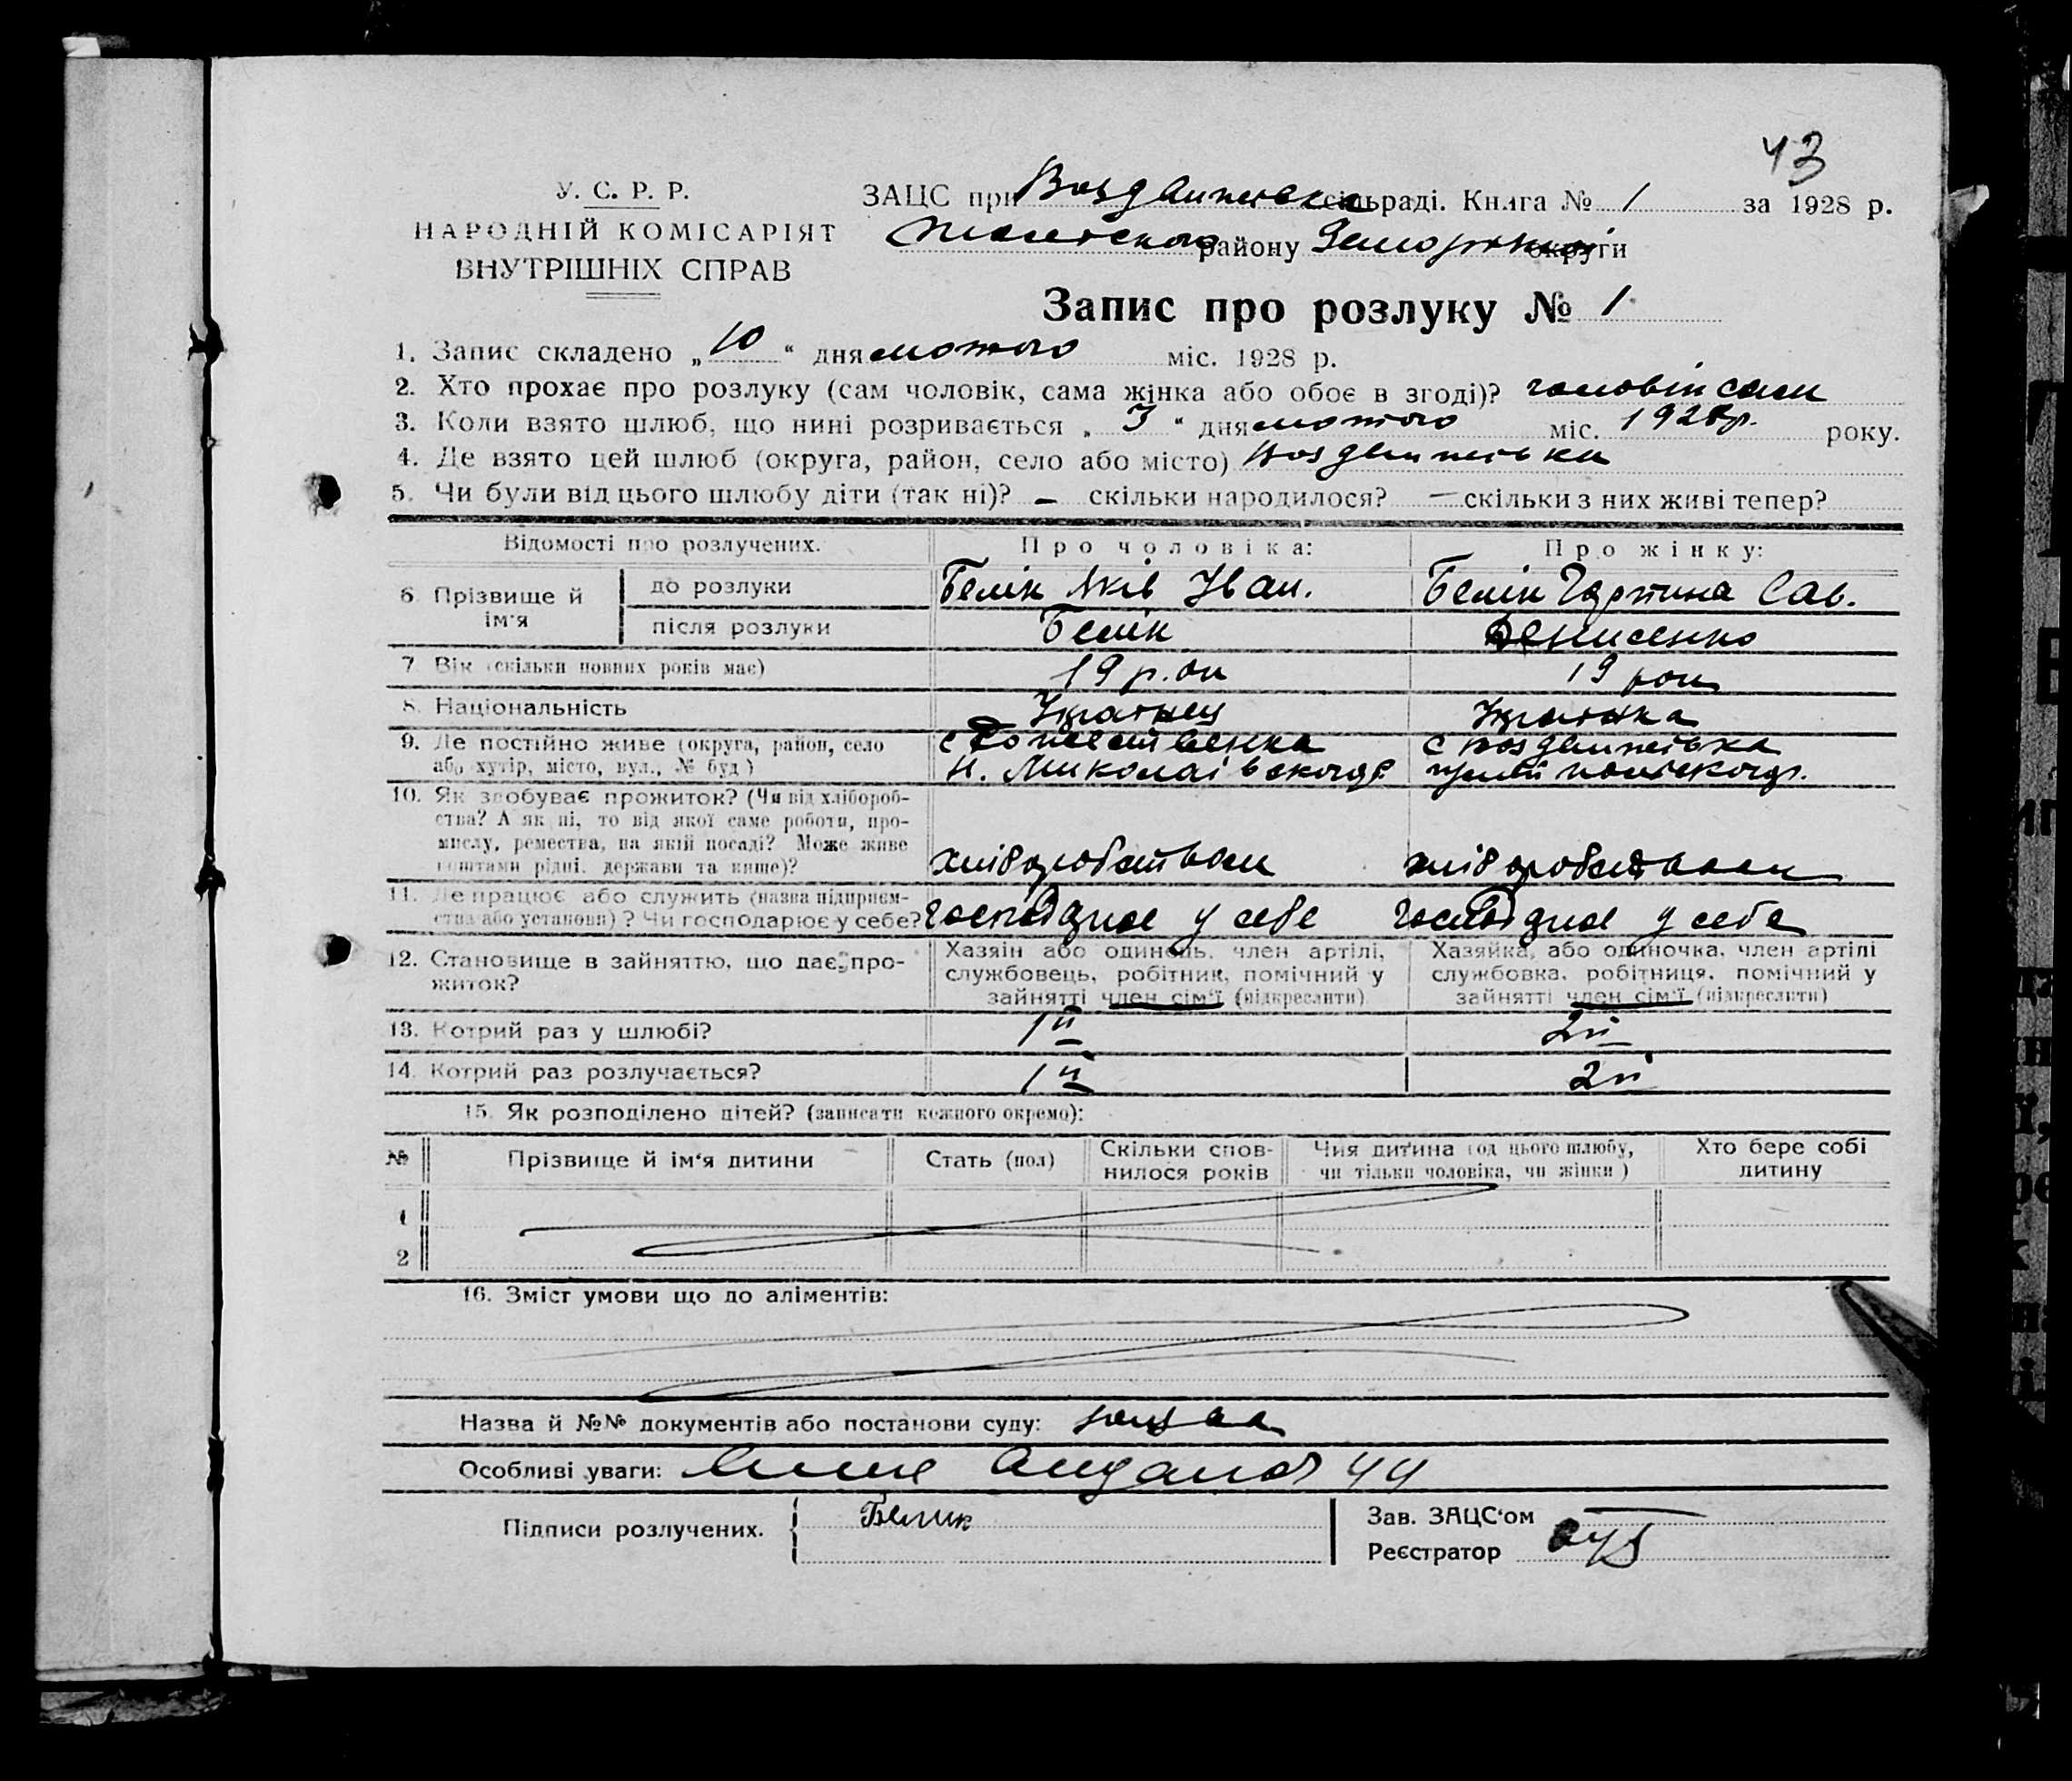 43
У. С. Р. Р.
НАРОДНІЙ КОМІСАРІЯТ
ВНУТРІШНІХ СПРАВ
ЗАЦС при Воздвижевка сільраді. Книга № 1 за 1928 р.
району округи
Запис про розлуку № 1
1. Запис складено „10“ дня лютого міс. 1928 р.
2. Хто прохає про розлуку (сам чоловік, сама жінка або обоє в згоді)? чоловік сам
3. Коли взято шлюб, що нині розривається „3“ дня лютого міс. 1928р. року.
4. Де взято цей шлюб (округа, район, село або місто) Воздвижевка
5. Чи були від цього шлюбу діти (так ні)? — скільки народилося? — скільки з них живі тепер?
Відомості про розлучених. Про чоловіка: Про жінку:
6. Прізвище й ім'я до розлуки Белік Яків Іван. Белік Сав.
після розлуки Белік Денисенко
7. Вік (скільки повних років має) 19 19
8. Національність
9. Де постійно живе (округа, район, село с с Воздвижевка
або хутір, місто, вул., № буд) Н. Миколаівского р.
10. Як здобуває прожиток? (Чи від хлібороб-
ства? А як ні, то від якої саме роботи, про-
мислу, ремества, на якій посаді? Може живе
коштами рідні, держави та инше)? хліборобством хліборобством
11. Де працює або служить (назва підприєм-
ства або установи)? Чи господарює у себе? у себе у себе
12. Становище в зайняттю, що дає про-
житок?
Хазяін або одинець, член артілі,
службовець, робітник, помічний у
зайнятті член сім'ї (підкреслити)
Хазяйка, або одиночка, член артілі
службовка, робітниця, помічний у
зайнятті член сім'ї (підкреслити)
13. Котрий раз у шлюбі? 1й 2й
14. Котрий раз розлучається? 1й 2й
15. Як розподілено дітей? (записати кожного окремо):
№ Прізвище й ім'я дитини Стать (пол) Скільки спов-
нилося років Чия дитина (од цього шлюбу,
чи тільки чоловіка, чи жінки) Хто бере собі
дитину
1
2
16. Зміст умови що до аліментів:
Назва й №№ документів або постанови суду:
Особливі уваги:
Підписи розлучених. Белик
Зав. ЗАЦС'ом
Реєстратор